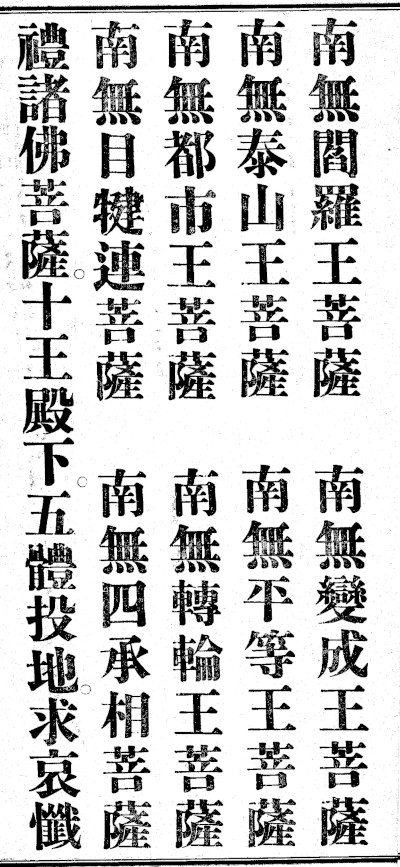 南無閻羅王菩薩　南無變成王菩薩
南無泰山王菩薩　南無平等王菩薩
南無都市王菩薩　南無轉輪王菩薩
南無目犍連菩薩　南無四承相菩薩
禮諸佛菩薩。十王殿下。五體投地。求哀懺